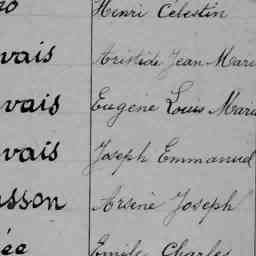 Henri Célestin
vais Aristide Jean Mari
vais Eugène Louis Marie
vais Joseph Emmanuel
sson Arsène Joseph
ée Emile Charles